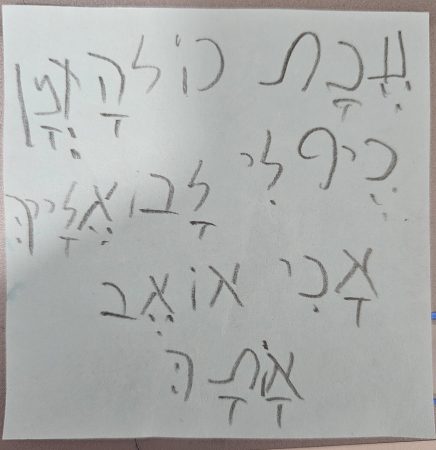 שֶׁבַּת כּוֹלְהָ אֶמֶן
כֵיף לִי לָבוֹ אֵלָיִךְ
אָכִי אוֹאֵב
אוֹתָךְ